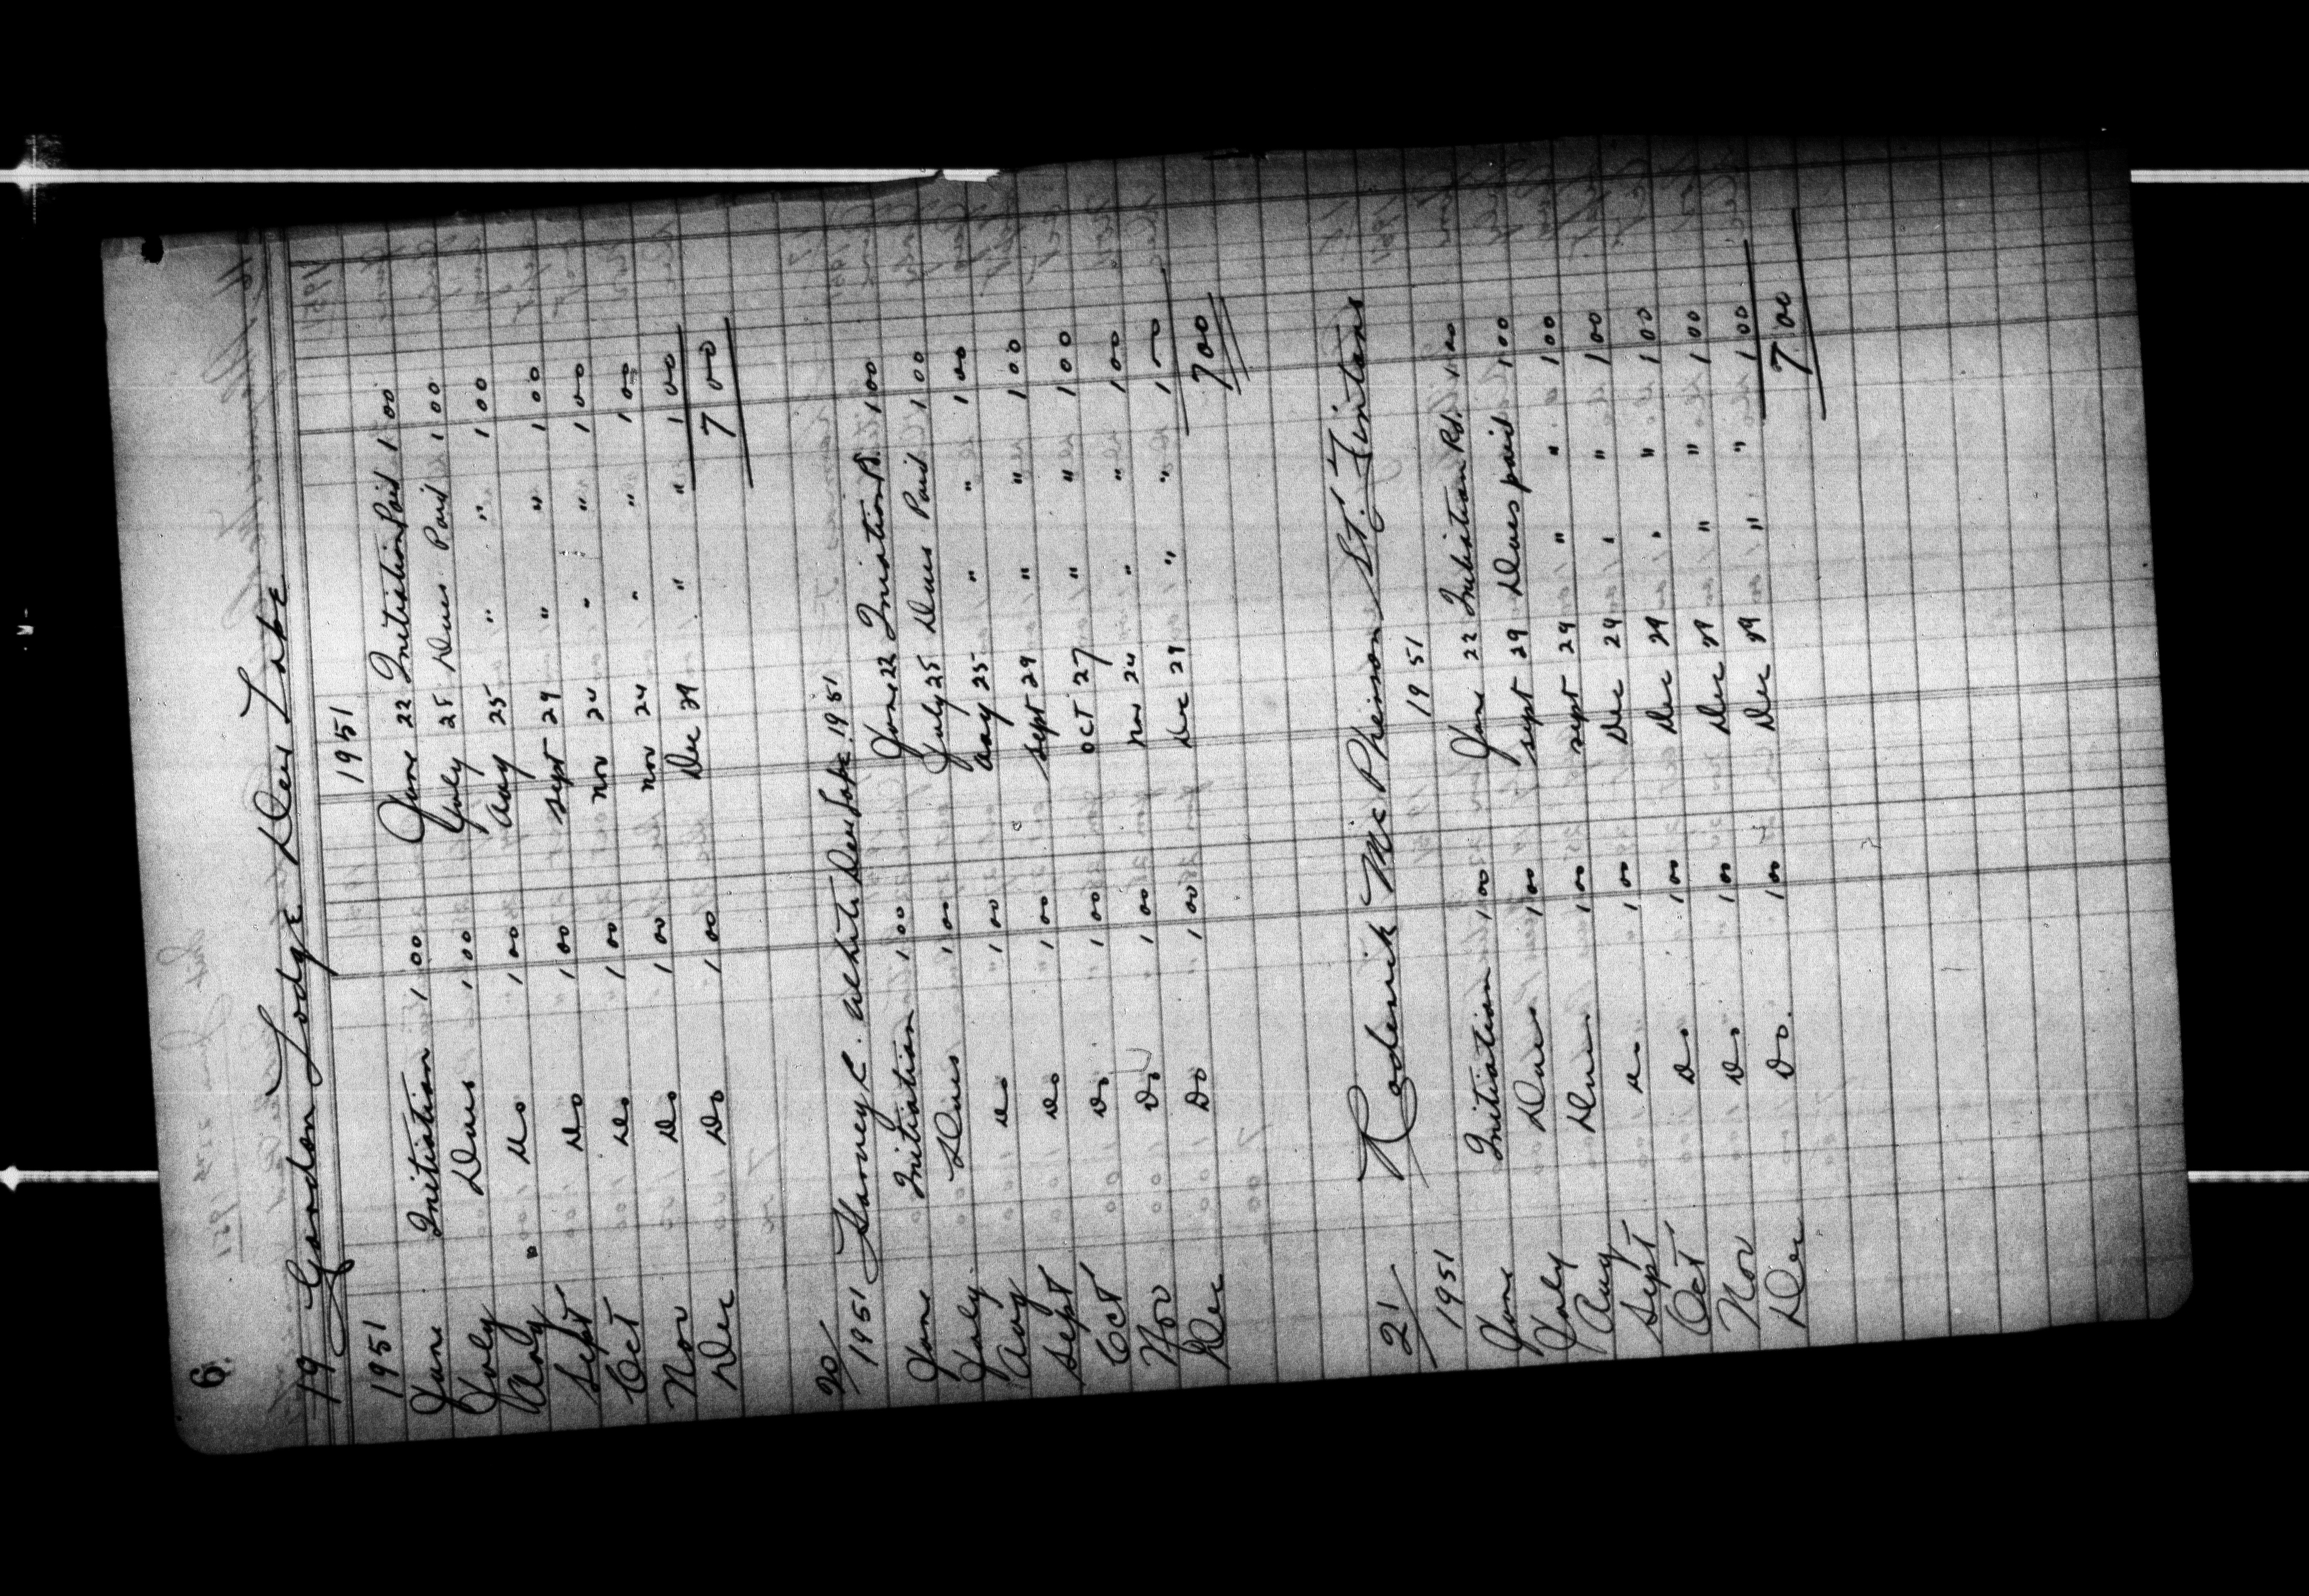 6.
19 Gordon Lodge Dew Lake
1951 1951
June Initiation 1 00 June 22 Initiation Paid 1 00
July Dues 1 00 July 25 Dues Paid 1 00
Aug " Do 1 00 Aug 25 " " 1 00
Sept Do 1 00 Sept 29 " " 1 00
Oct Do 1 00 Nov 24 " " 1 00
Nov Do 1 00 Nov 24 " " 1 00
Dec Do 1 00 Dec 29 " " 1 00
7 00
20/ Harvey C. White Dew Lake 1951
1951
June Initiation 1 00 June 22 Iniation Pd. 1 00
July Dues 1 00 July 25 Dues Paid 1 00
Aug Do 1 00 Aug 25 " " 1 00
Sept Do 1 00 Sept 29 " " 1 00
Oct Do 1 00 Oct 27 " " 1 00
Nov Do 1 00 Nov 24 " " 1 00
Dec Do 1 00 Dec 29 " " 1 00
7 00
21/ Roderick McPheirson St. Fintans
1951 1951
June Initiation 1 00 June 22 Initiation Pd. 1 00
July Dues 1 00 Sept 29 Dues paid 1 00
Aug Dues 1 00 Sept 29 " " 1 00
Sept Do 1 00 Dec 29 " " 1 00
Oct Do 1 00 Dec 29 " " 1 00
Nov Do 1 00 Dec 29 " " 1 00
Dec Do. 1 00 Dec 29 " " 1 00
7 00